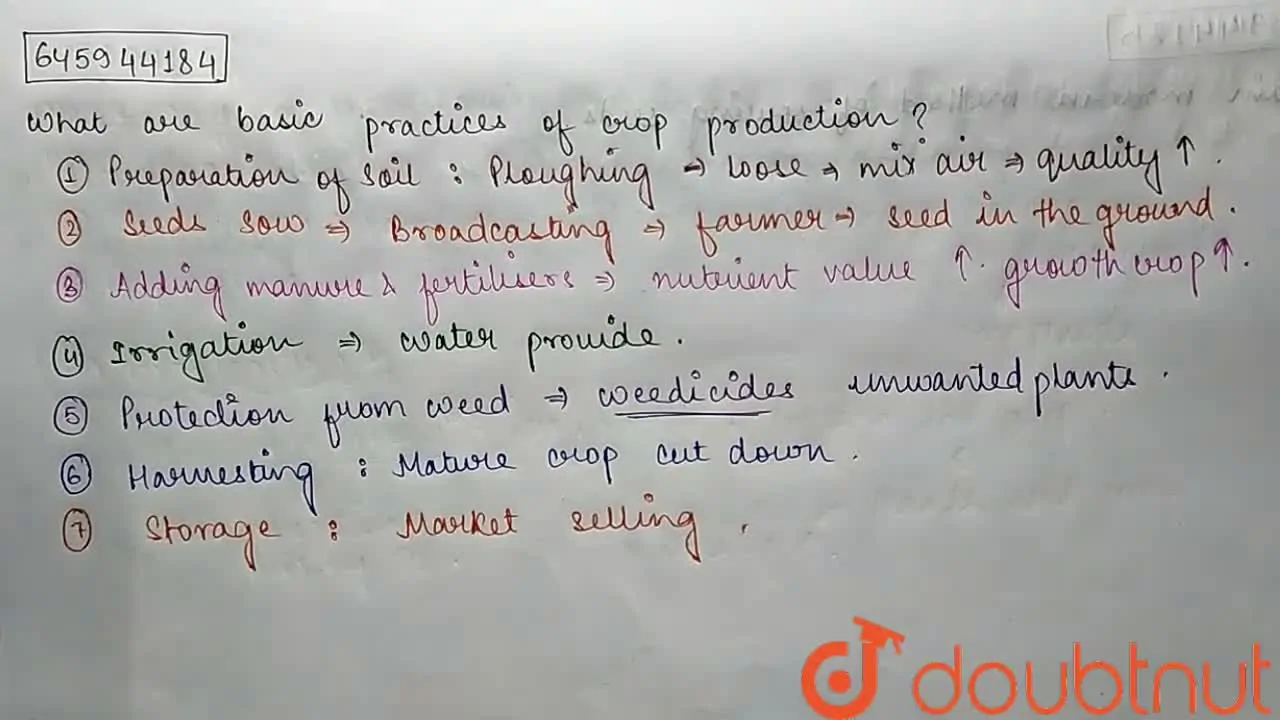 645944184
What are basic practices of crop production?
① Preparation of soil : Ploughing → loose → mix air ⇒ quality ↑.
② Seeds sow ⇒ Broadcasting ⇒ farmer ⇒ seed in the ground.
③ Adding manure & fertilisers ⇒ nutrient value ↑. growth crop ↑.
④ Irrigation ⇒ water provide.
⑤ Protection from weed ⇒ weedicides unwanted plants.
⑥ Harvesting : Mature crop cut down.
⑦ Storage : Market selling.
doubtnut